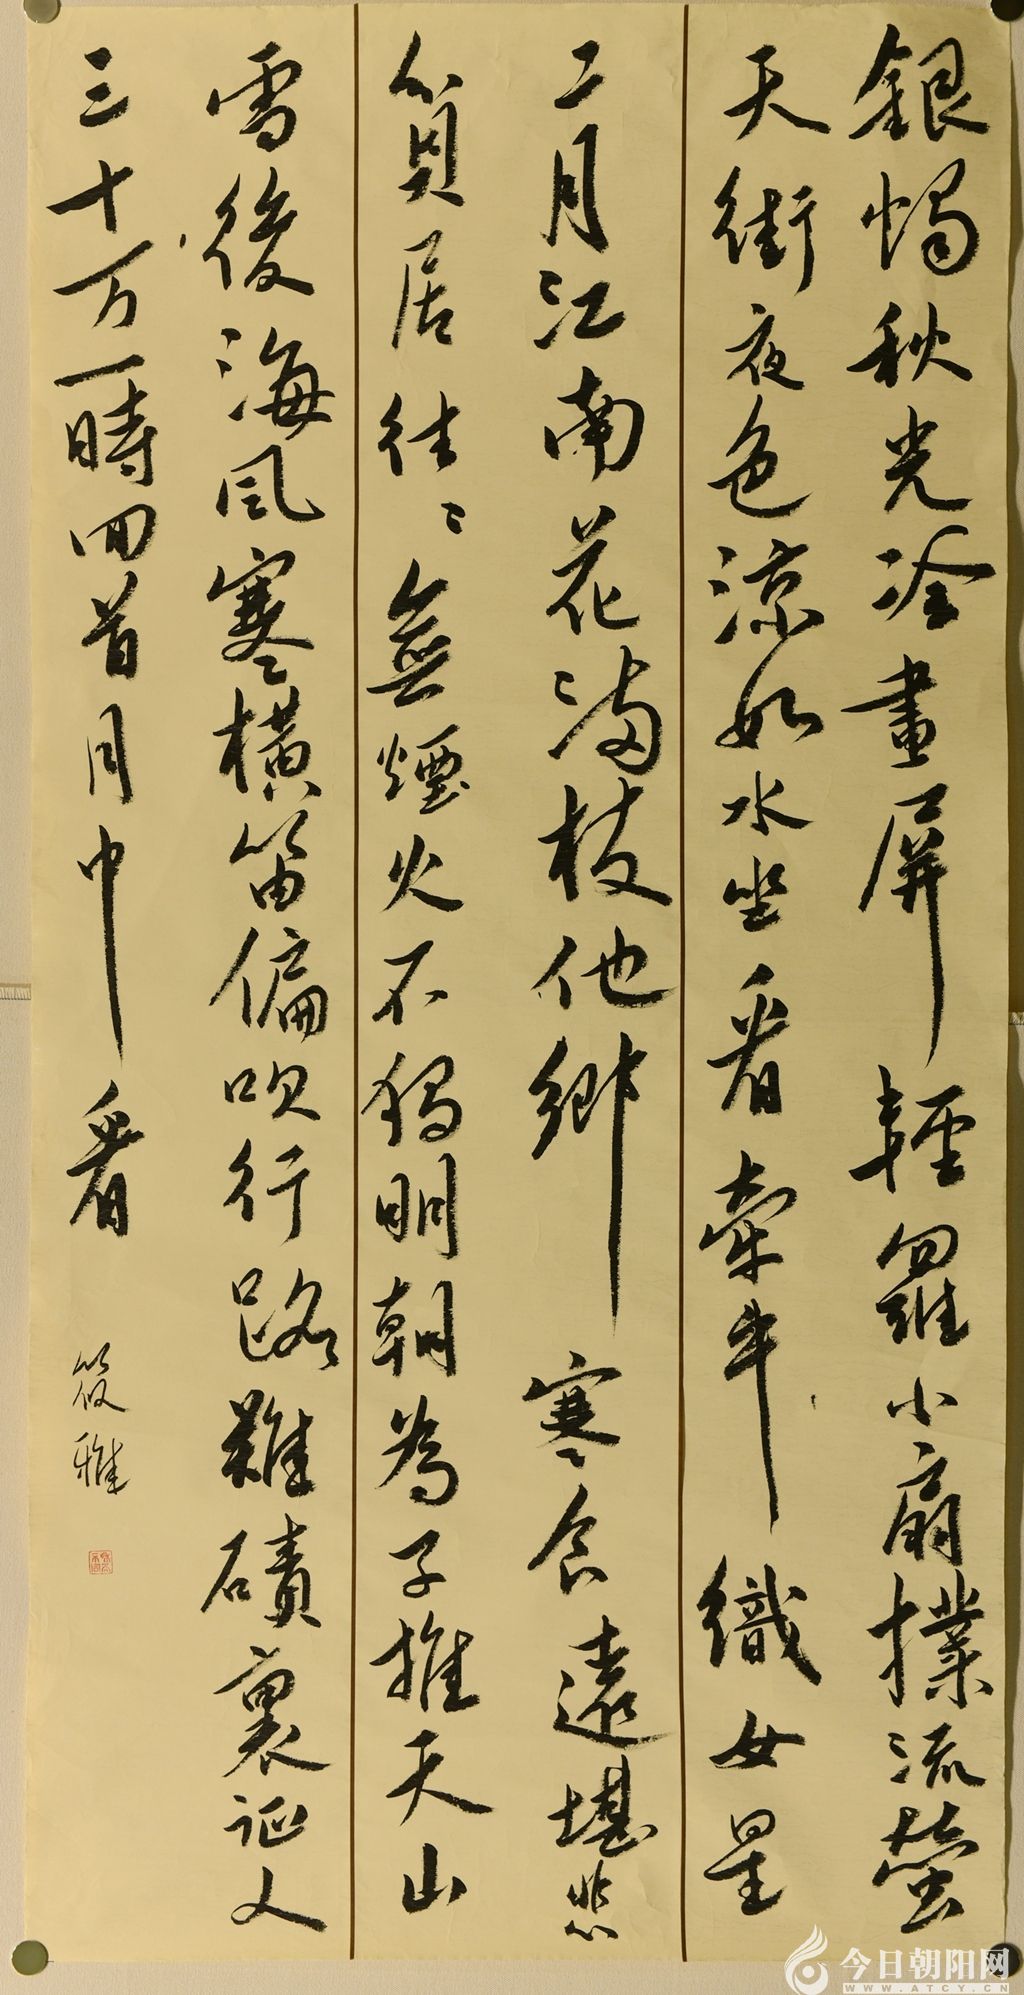 銀燭秋光冷畫屏輕羅小扇撲流螢
天街夜色涼如水坐看牽牛織女星
二月江南花滿枝他鄉寒食遠堪悲
貧居往〻無煙火不獨明朝為子推天山
雪後海風寒橫笛偏吹行路難磧裏征人
三十万一時回首月中看
筱雅
今日朝阳网
WWW.ATCY.CN